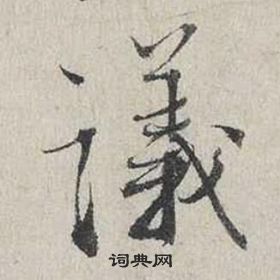 議
词典网